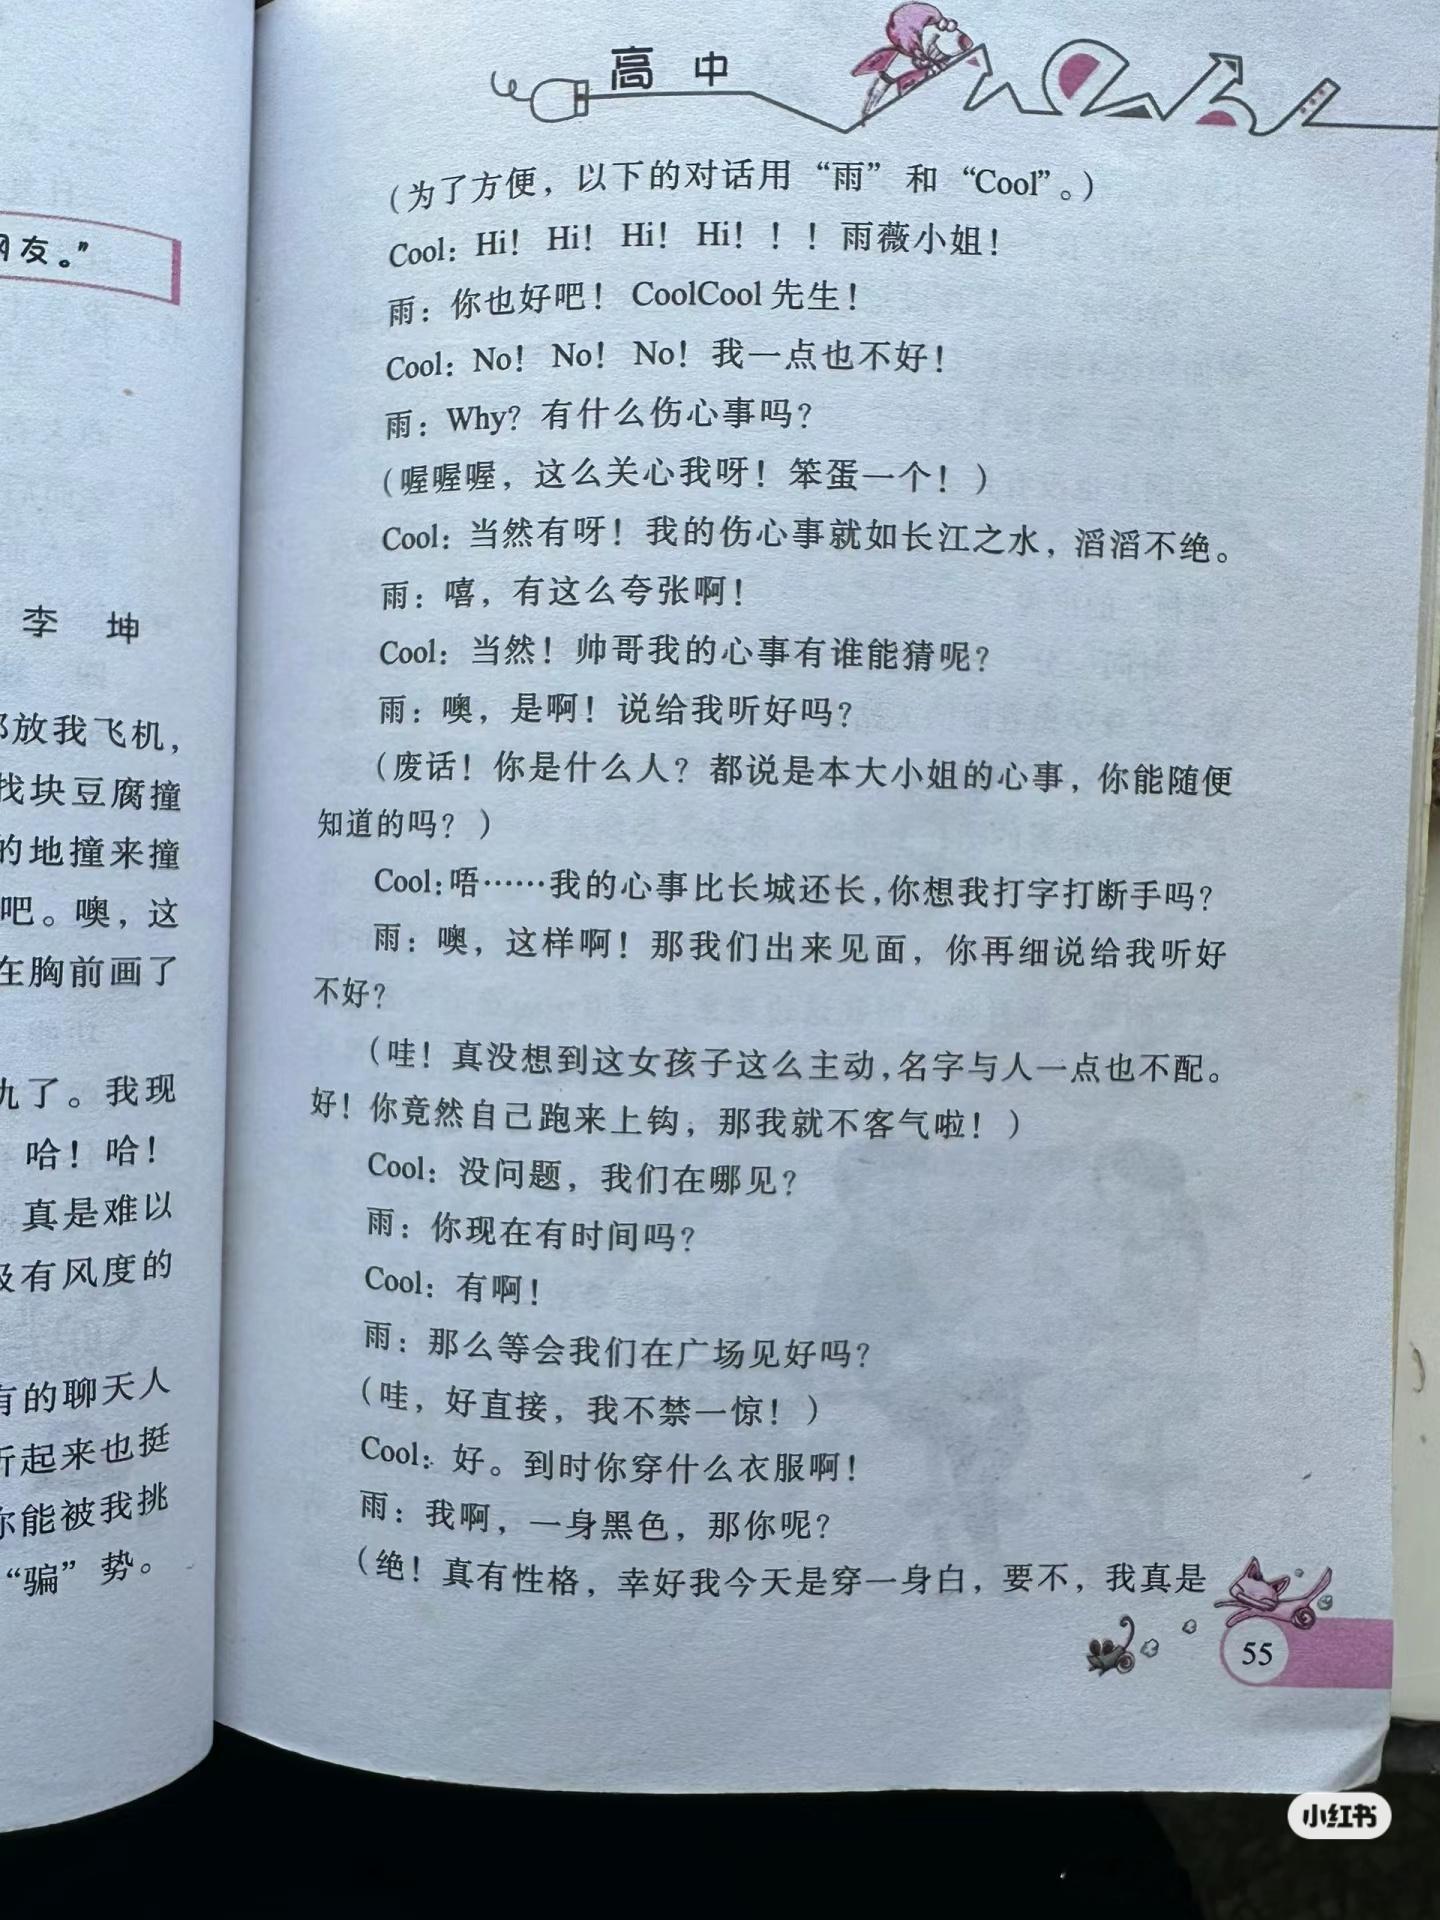 网友。”
李 坤
放我飞机，
找块豆腐撞
的地撞来撞
吧。噢，这
在胸前画了
九了。我现
哈！哈！
真是难以
及有风度的
有的聊天人
听起来也挺
你能被我挑
“骗”势。
高中
（为了方便，以下的对话用“雨”和“Cool”。）
Cool：Hi！Hi！Hi！Hi！！！雨薇小姐！
雨：你也好吧！CoolCool先生！
Cool：No！No！No！我一点也不好！
雨：Why？有什么伤心事吗？
（喔喔喔，这么关心我呀！笨蛋一个！）
Cool：当然有呀！我的伤心事就如长江之水，滔滔不绝。
雨：嘻，有这么夸张啊！
Cool：当然！帅哥我的心事有谁能猜呢？
雨：噢，是啊！说给我听好吗？
（废话！你是什么人？都说是本大小姐的心事，你能随便
知道的吗？）
Cool：唔……我的心事比长城还长，你想我打字打断手吗？
雨：噢，这样啊！那我们出来见面，你再细说给我听好
不好？
（哇！真没想到这女孩子这么主动，名字与人一点也不配。
好！你竟然自己跑来上钩，那我就不客气啦！）
Cool：没问题，我们在哪见？
雨：你现在有时间吗？
Cool：有啊！
雨：那么等会我们在广场见好吗？
（哇，好直接，我不禁一惊！）
Cool：好。到时你穿什么衣服啊！
雨：我啊，一身黑色，那你呢？
（绝！真有性格，幸好我今天是穿一身白，要不，我真是
55
小红书